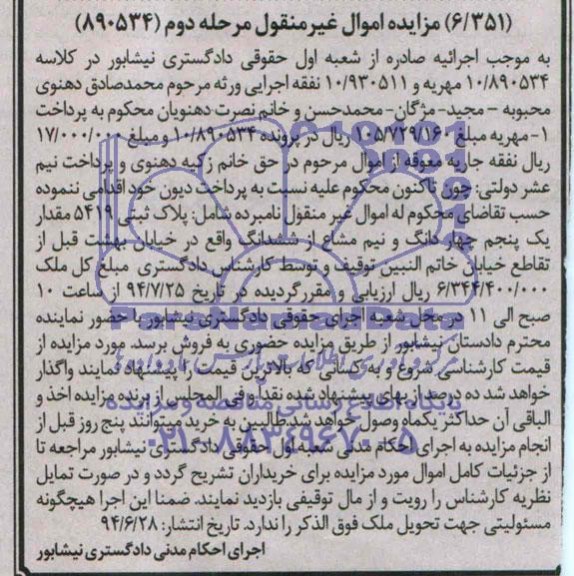 (۶/۳۵۱) مزایده اموال غیرمنقول مرحله دوم (۸۹۰۵۳۴)
به موجب اجرائیه صادره از شعبه اول حقوقی دادگستری نیشابور در کلاسه
۱۰/۸۹۰۵۳۴ مهریه و ۱۰/۹۳۰۵۱۱ نفقه اجرایی ورثه مرحوم محمدصادق دهنوی
محبوبه – مجید-مژگان-محمدحسن و خانم نصرت دهنویان محکوم به پرداخت
۱- مهریه مبلغ ۱۰۵/۷۲۹/۱۶۰ ریال در پرونده ۱۰/۸۹۰۵۳۴ و مبلغ ۱۷/۰۰۰/۰۰۰
ریال نفقه جاریه معوقه از اموال مرحوم در حق خانم زکیه دهنوی و پرداخت نیم
عشر دولتی: چون تاکنون محکوم علیه نسبت به پرداخت دیون خود اقدامی ننموده
حسب تقاضای محکوم له اموال غیر منقول نامبرده شامل: پلاک ثبتی ۵۴۱۹ مقدار
یک پنجم چهار دانگ و نیم مشاع از ششدانگ واقع در خیابان بهشت قبل از
تقاطع خیابان خاتم النبین توقیف و توسط کارشناس دادگستری مبلغ کل ملک
۶/۳۴۴/۴۰۰/۰۰۰ ریال ارزیابی و مقرر گردیده در تاریخ ۹۴/۷/۲۵ از ساعت ۱۰
صبح الی ۱۱ در محل شعبه اجرای حقوقی دادگستری نیشابور با حضور نماینده
محترم دادستان نیشابور از طریق مزایده حضوری به فروش برسد. مورد مزایده از
قیمت کارشناسی شروع و به کسانی که بالاترین قیمت را پیشنهاد نمایند واگذار
خواهد شد ده درصد از بهای پیشنهاد شده نقدا و فی المجلس از برنده مزایده اخذ و
الباقی آن حداکثر یکماه وصول خواهد شد.طالبین به خرید میتوانند پنج روز قبل از
انجام مزایده به اجرای احکام مدنی شعبه اول حقوقی دادگستری نیشابور مراجعه تا
از جزئیات کامل اموال مورد مزایده برای خریداران تشریح گردد و در صورت تمایل
نظریه کارشناس را رویت و از مال توقیفی بازدید نمایند. ضمنا این اجرا هیچگونه
مسئولیتی جهت تحویل ملک فوق الذکر را ندارد. تاریخ انتشار: ۹۴/۶/۲۸
اجرای احکام مدنی دادگستری نیشابور
ParsNamadData
پایگاه اطلاع رسانی مناقصه و مزایده
۰۲۱-۸۸۳۴۹۶۷۰-۵